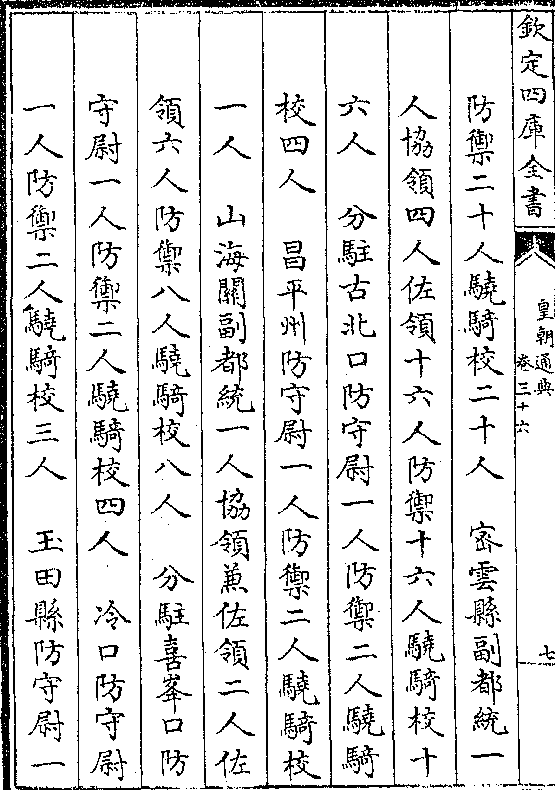 欽定四庫全書
皇朝通典
卷三十六
七
防禦二十人驍騎校二十人　密雲縣副都統一
人協領四人佐領十六人防禦十六人驍騎校十
六人　分駐古北口防守尉一人防禦二人驍騎
校四人　昌平州防守尉一人防禦二人驍騎校
一人　山海關副都統一人協領兼佐領二人佐
領六人防禦八人驍騎校八人　分駐喜峯口防
守尉一人防禦二人驍騎校四人　冷口防守尉
一人防禦二人驍騎校三人　玉田縣防守尉一